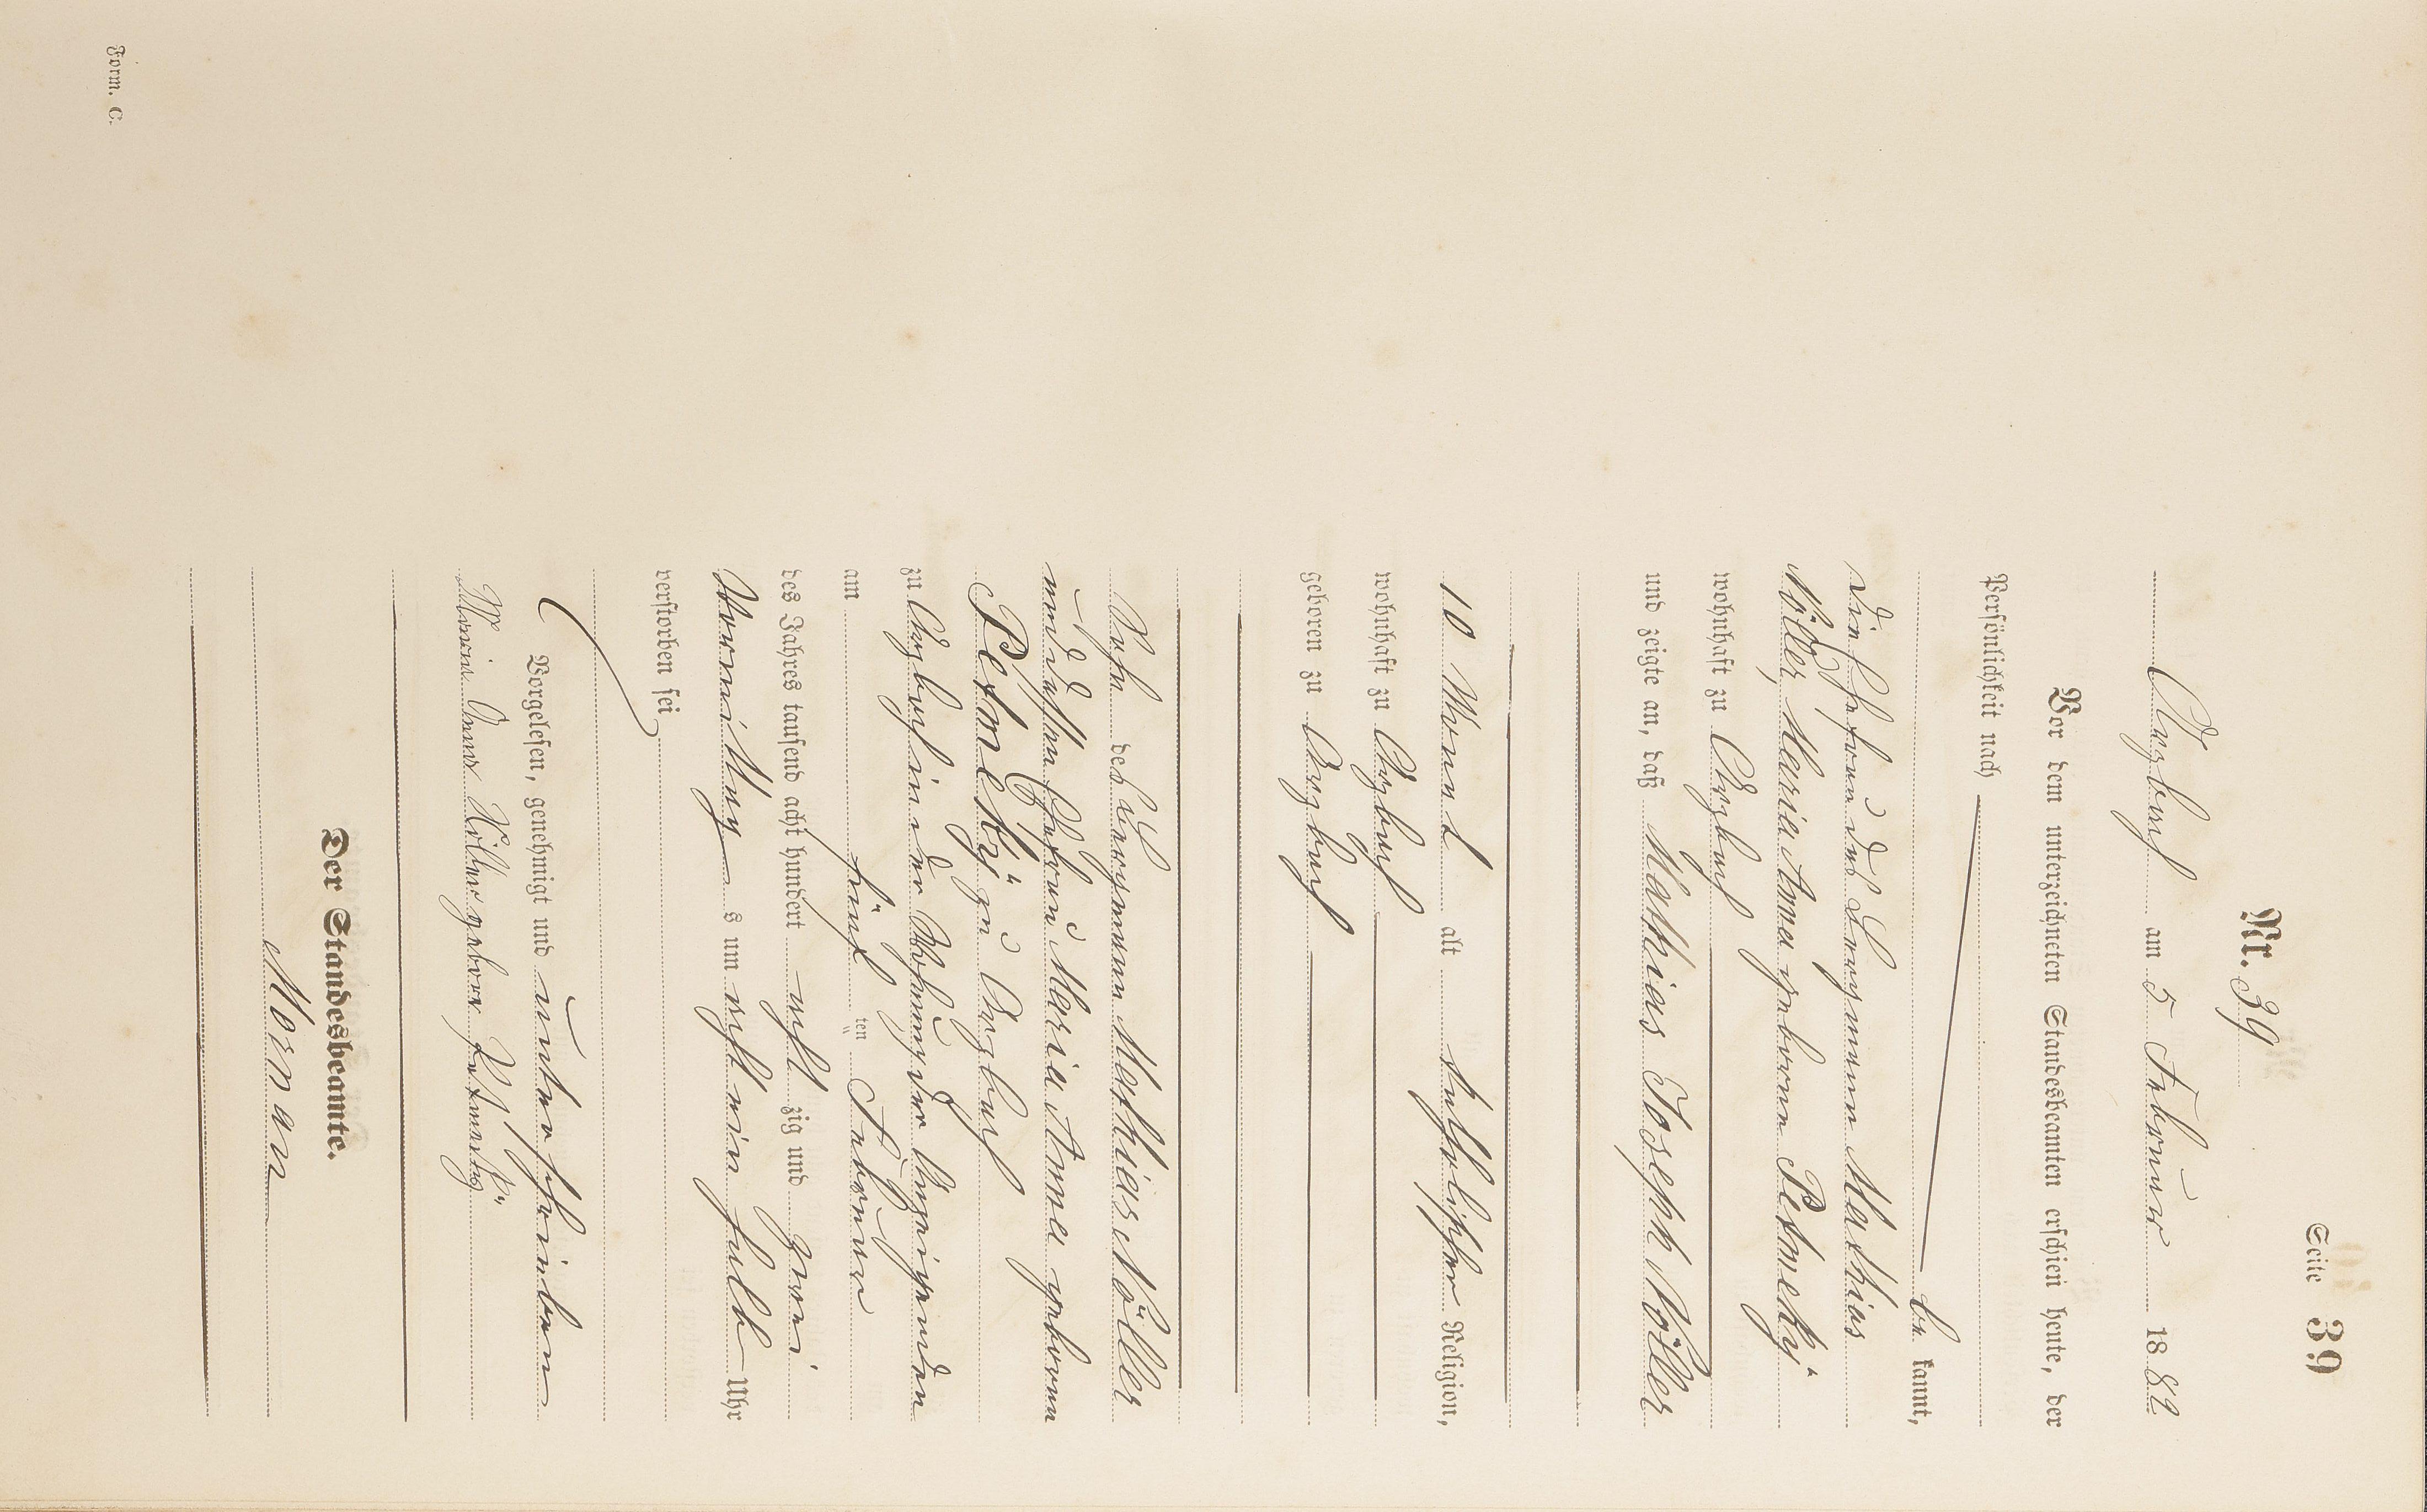 Seite 39
Nr. 39
Arzbach am 5 Februar 1882
Vor dem unterzeichneten Standesbeamten erschien heute, der
Persönlichkeit nach
be kannt,
die Ehefrau des Bergmann Mathias
Nöller, Maria Anna geborne Petmecky
wohnhaft zu Arzbach
und zeigte an, daß Mathias Joseph Nöller
10 Monat alt katholischer Religion,
wohnhaft zu Arzbach
geboren zu Arzbach
Sohn des Bergmann Mathias Nöller
und dessen Ehefrau Maria Anna geborne
Petmecky zu Arzbach
zu Arzbach in der Wohnung der Anzeigenden
am fünf ten Februar
des Jahres tausend acht hundert acht zig und zwei
Vormittag s um acht ein halb Uhr
verstorben sei
Vorgelesen, genehmigt und unterschrieben
Maria Anna Nöller geborne Petmecky
Der Standesbeamte.
Morman
Form. C.